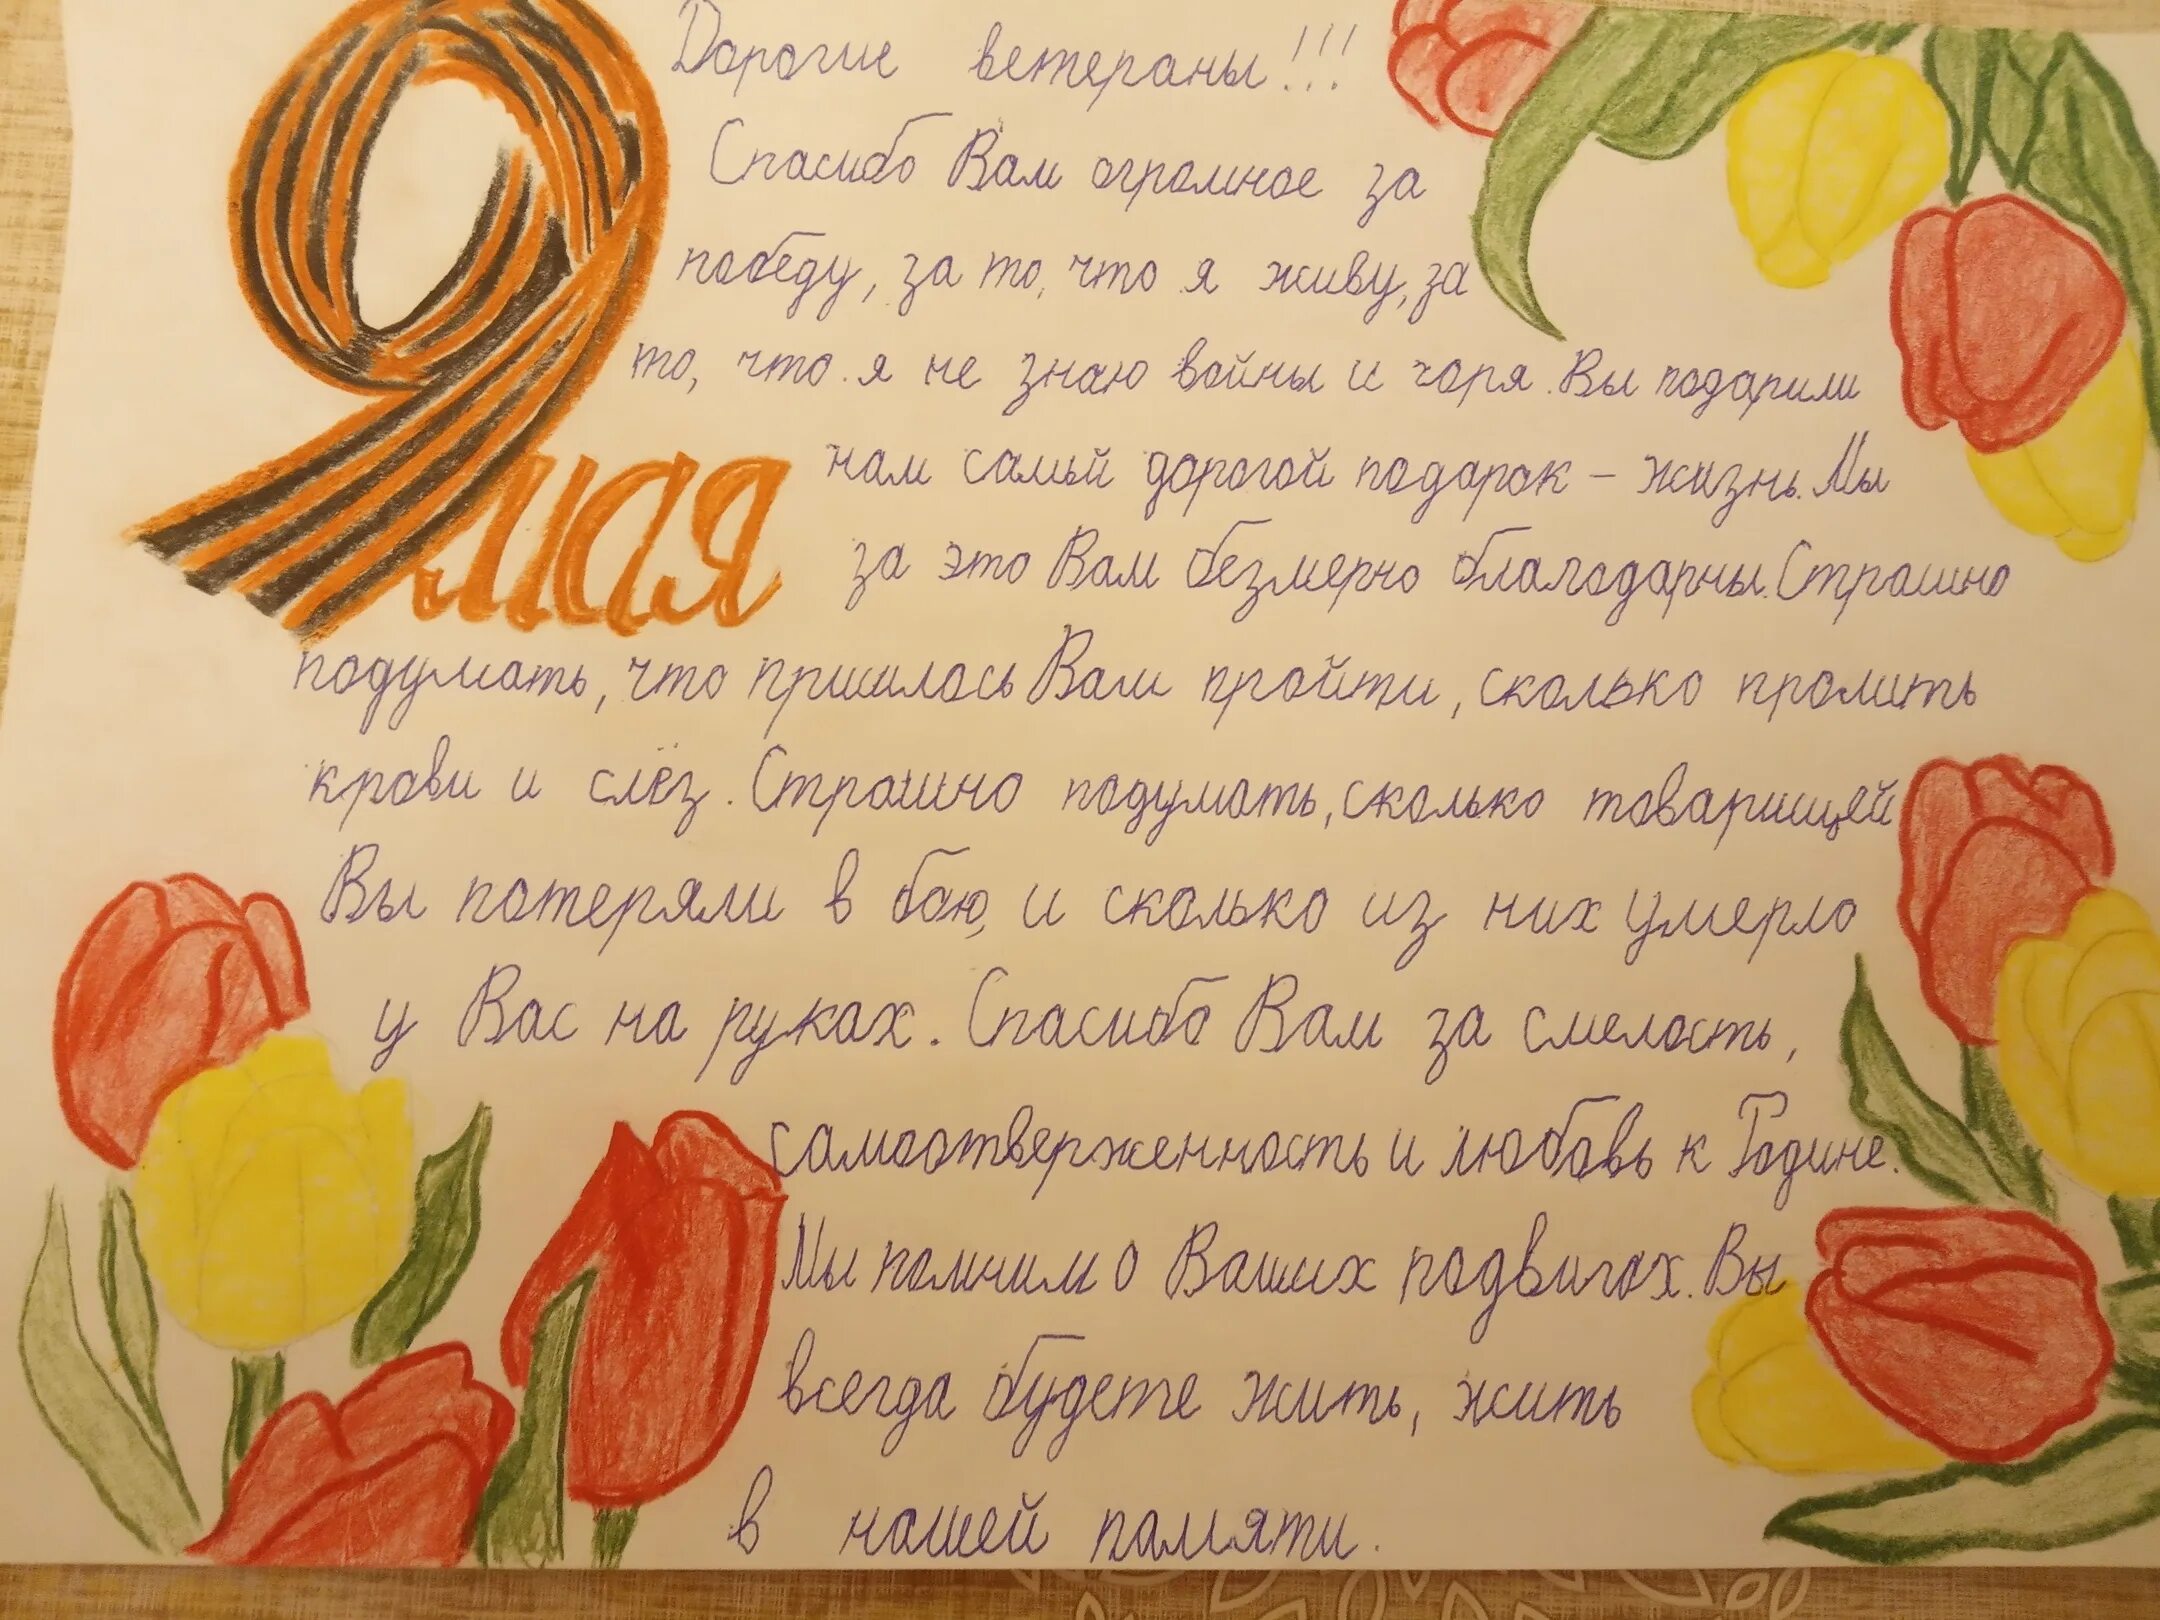 Дорогие ветераны!!!
Спасибо Вам огромное за
победу, за то, что я живу, за
то, что я не знаю войны и горя. Вы подарили
9 мая
нам самый дорогой подарок - жизнь. Мы
за это Вам безмерно благодарны. Страшно
подумать, что пришлось Вам пройти, сколько пролить
крови и слёз. Страшно подумать, сколько товарищей
Вы потеряли в бою, и сколько из них умерло
у Вас на руках. Спасибо Вам за смелость,
самоотверженность и любовь к Родине.
Мы помним о Ваших подвигах. Вы
всегда будете жить, жить
в нашей памяти.